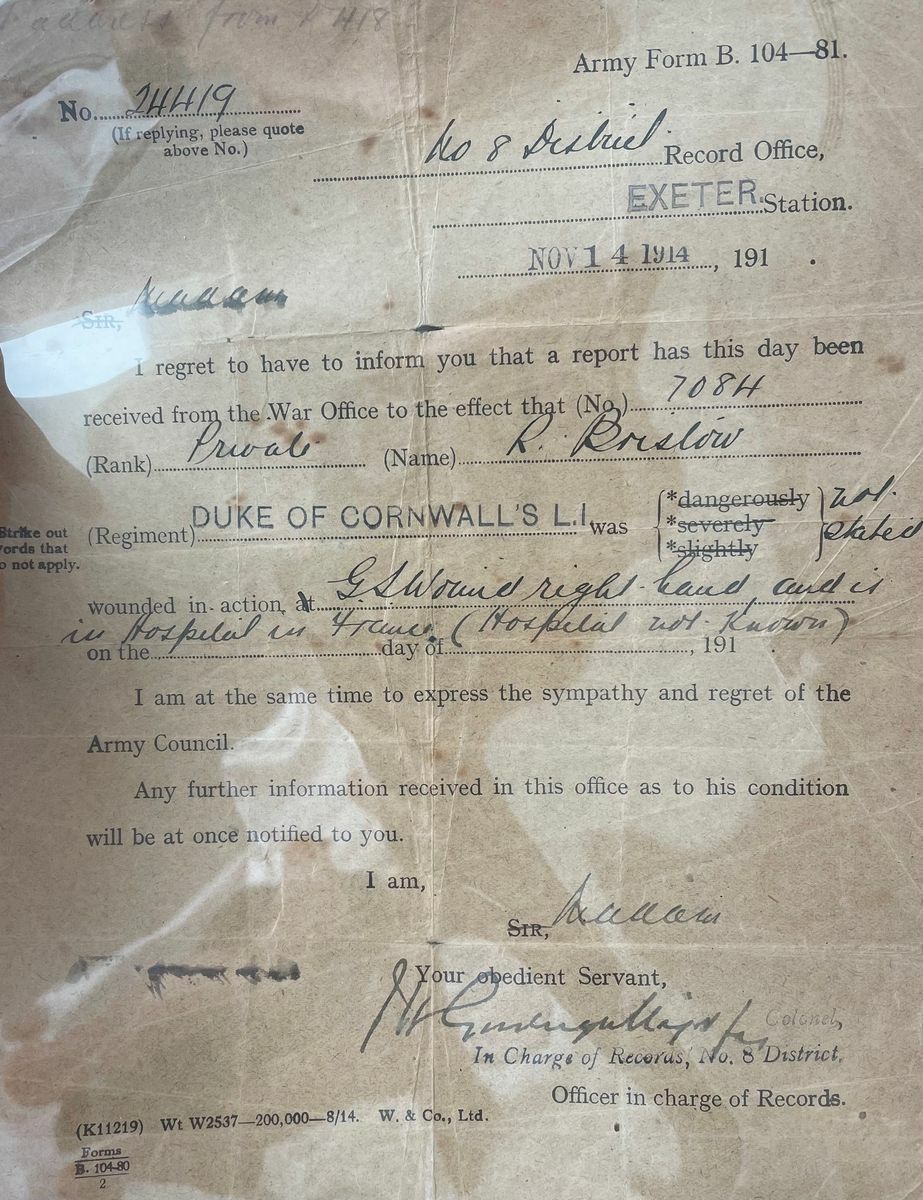 address from
Army Form B. 104—81.
No. 24419
(If replying, please quote
above No.)
No 8 District Record Office,
EXETER. Station.
NOV 14 1914, 191 .
SIR, Madam
I regret to have to inform you that a report has this day been
received from the War Office to the effect that (No.) 7084
(Rank) Private (Name) R. Bristow
(Regiment) DUKE OF CORNWALL'S L.I. was { *dangerously *severely *slightly } not stated
Strike out
words that
do not apply.
wounded in action, at G S Wound right hand, and is
in Hospital in France. (Hospital not known)
on the day of , 191 .
I am at the same time to express the sympathy and regret of the
Army Council.
Any further information received in this office as to his condition
will be at once notified to you.
I am,
SIR, Madam
Your obedient Servant,
Major for Colonel,
In Charge of Records, No. 8 District.
Officer in charge of Records.
(K11219) Wt W2537—200,000—8/14. W. & Co., Ltd.
Forms
B. 104-80
2